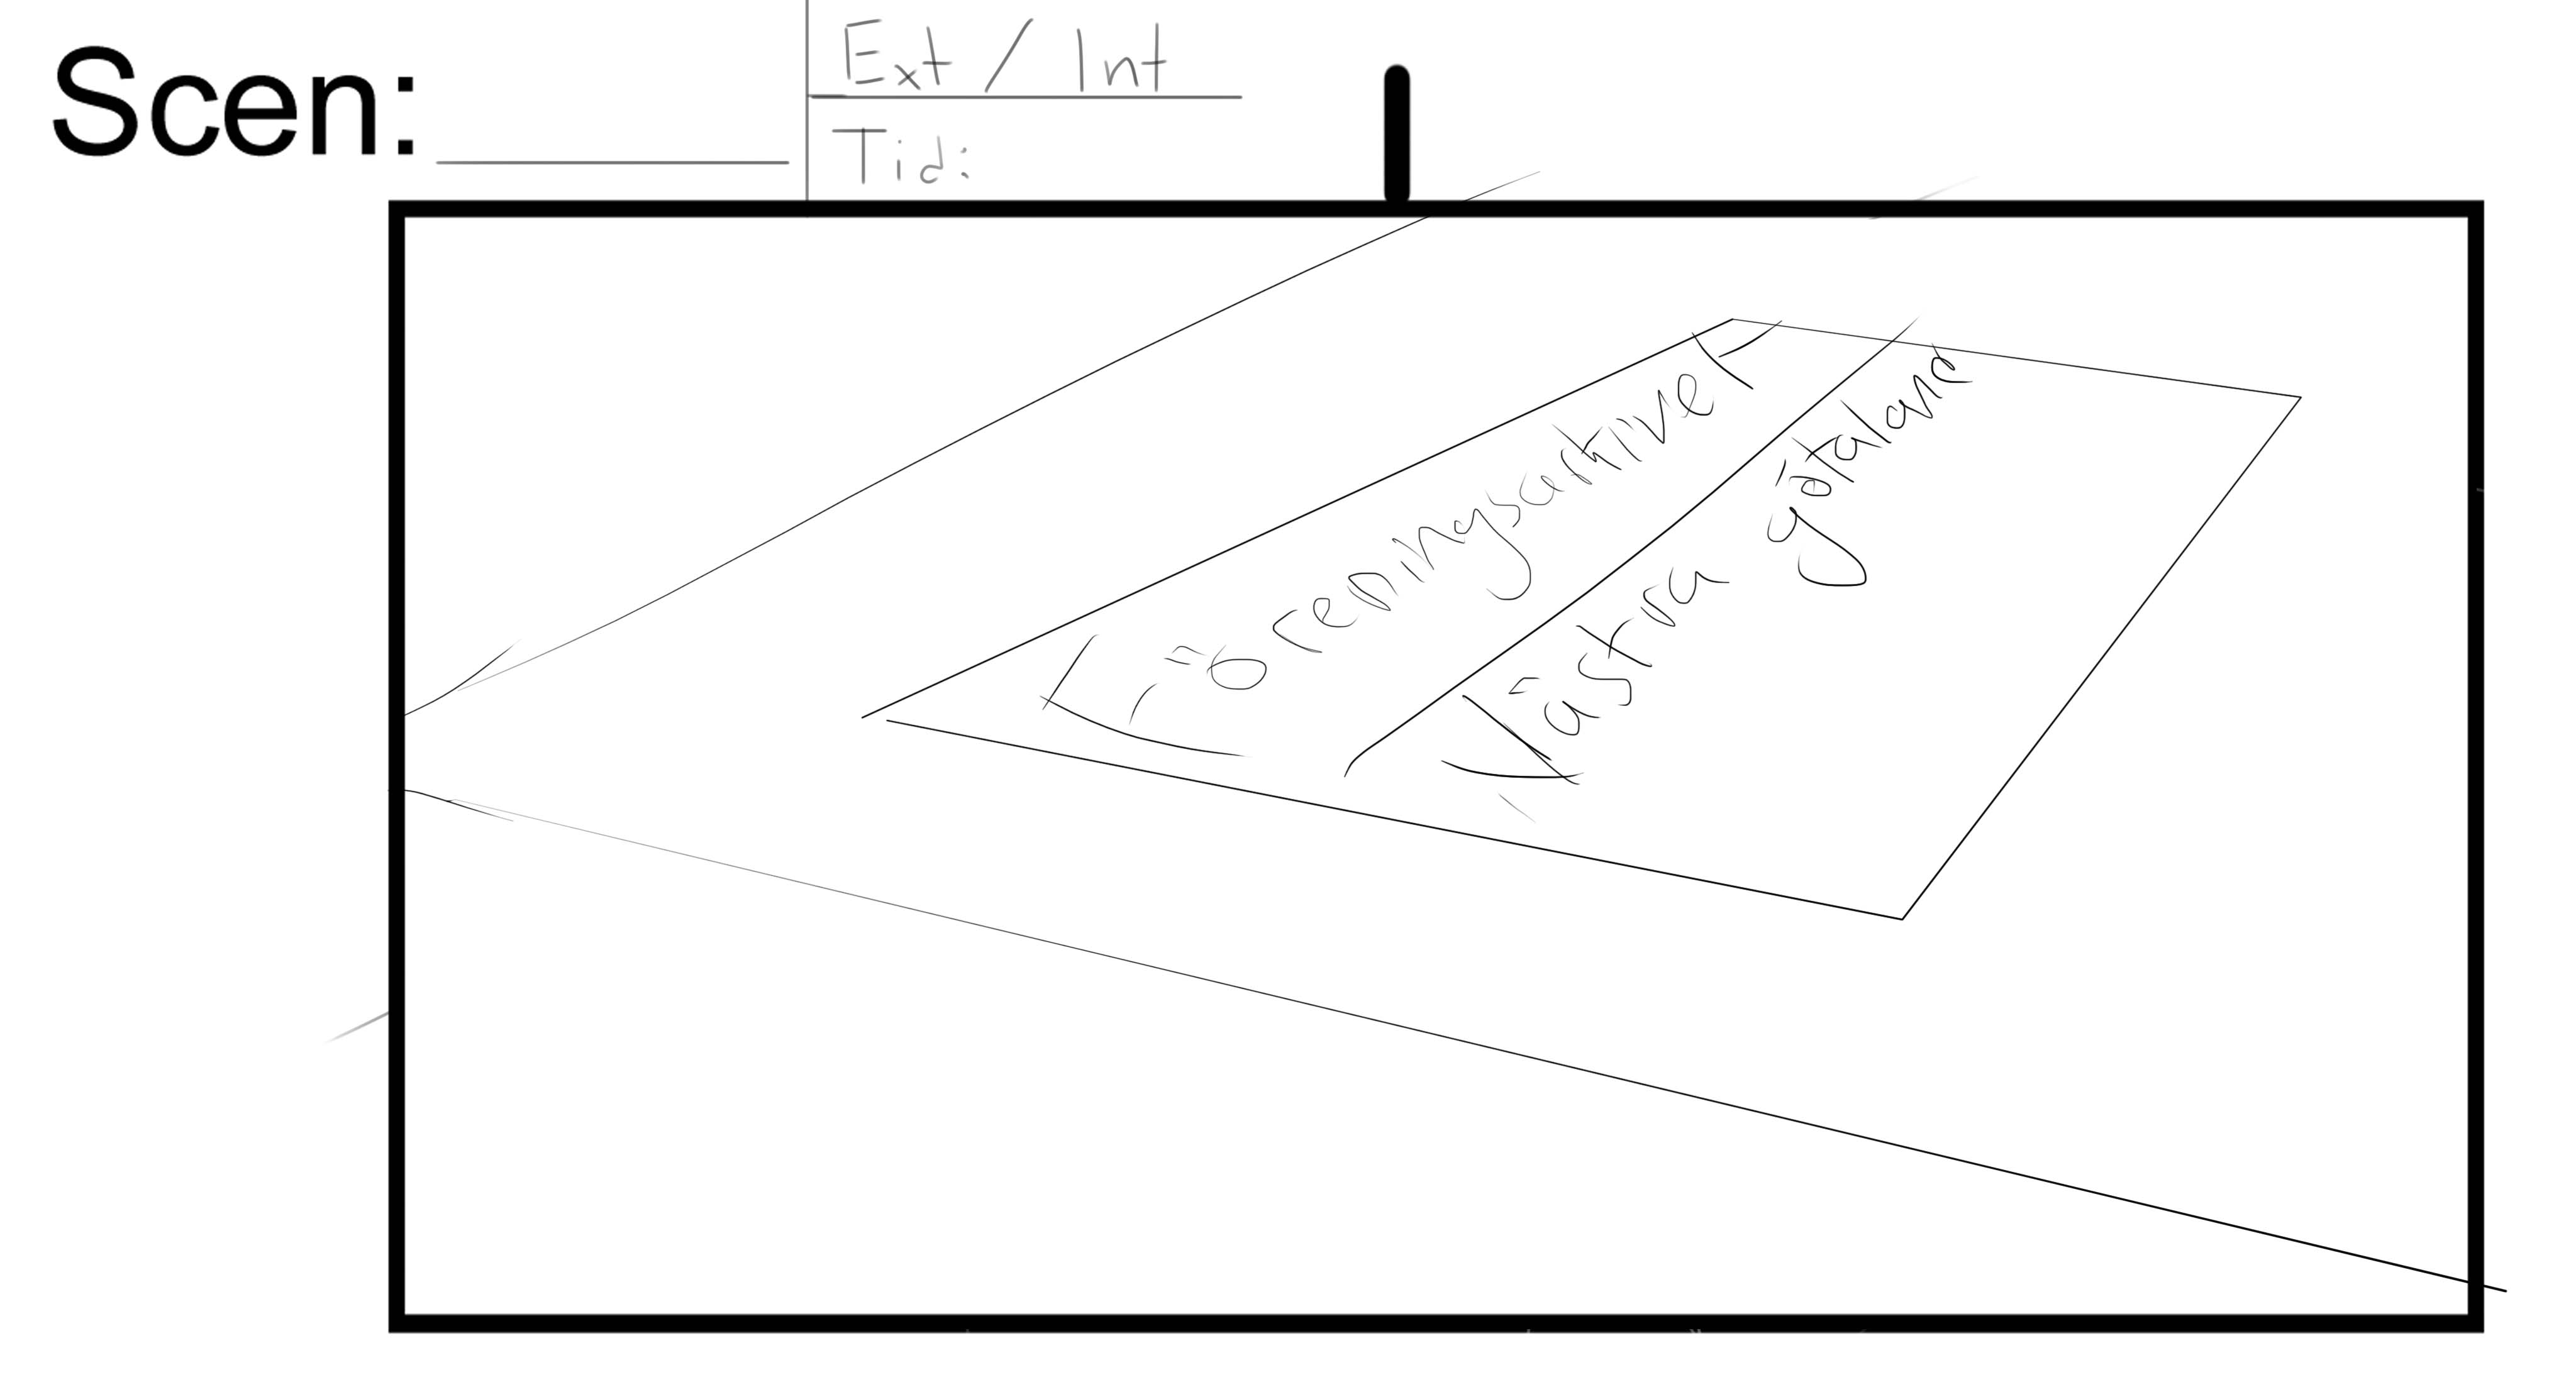 Scen:
Ext / Int
Tid:
Föreningsarkivet
Västra götaland